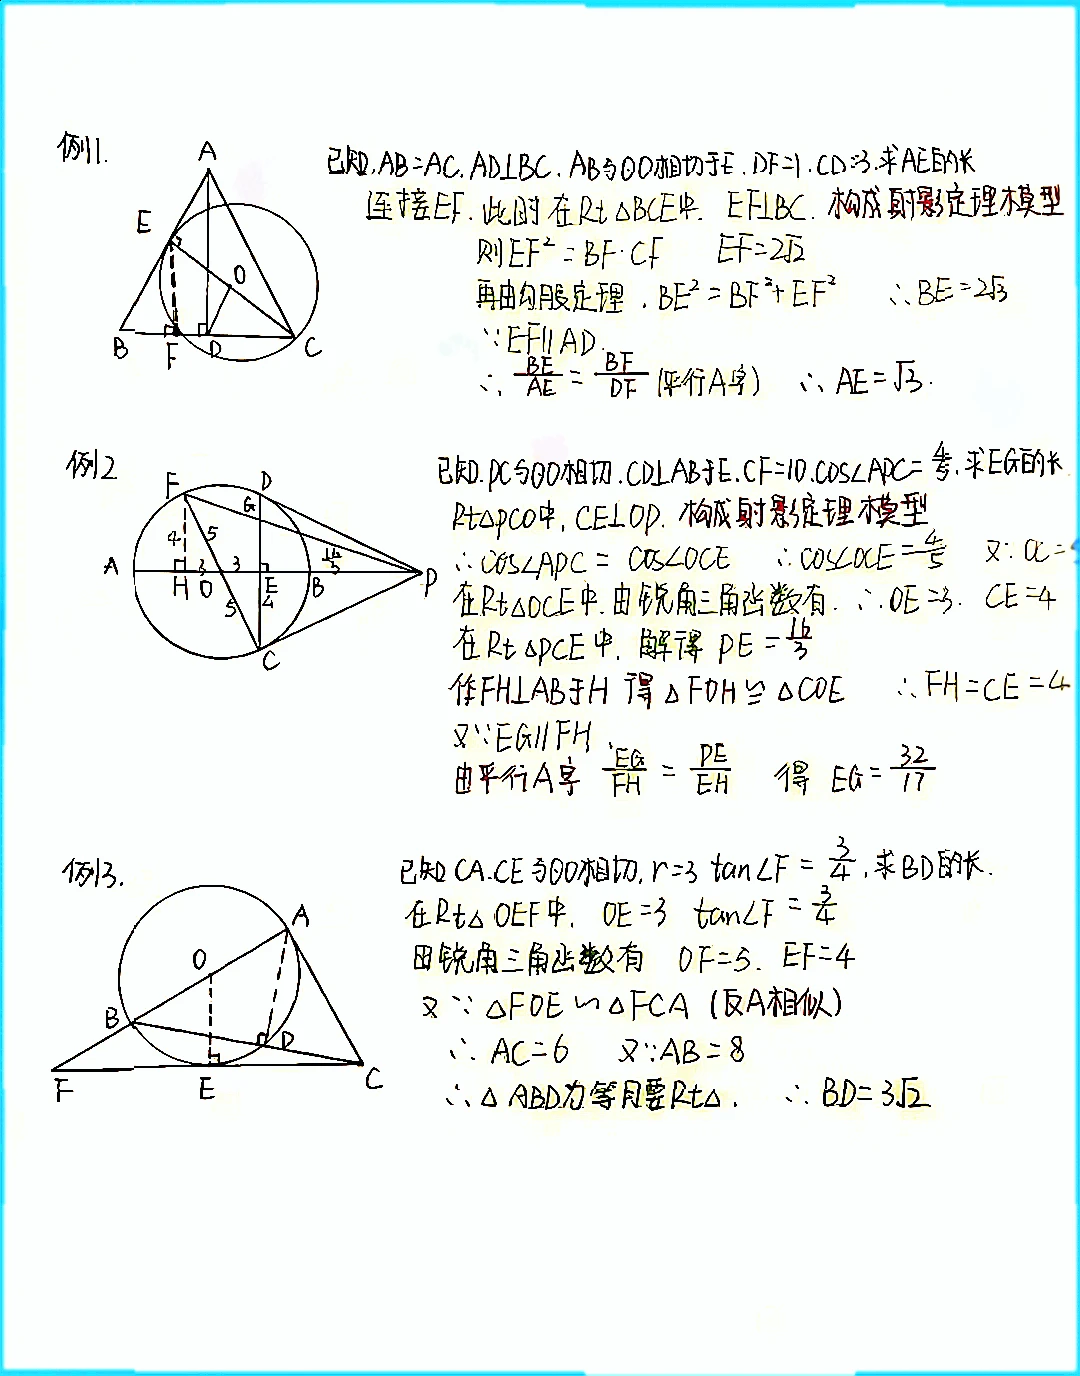 例1.
A
E
O
B
F
D
C
已知,AB=AC,AD⊥BC,AB与⊙O相切于E,DF=1,CD=3,求AE的长
连接EF,此时在Rt△BCE中,EF⊥BC,构成射影定理模型
则EF²=BF·CF EF=2√2
再由勾股定理,BE²=BF²+EF² ∴BE=2√3
∵EF∥AD.
∴ BE/AE = BF/DF (平行A字) ∴ AE=√3.
例2
F
D
G
4
5
3
3
16/5
A
H
O
E
B
P
5
4
C
已知.PC与⊙O相切,CD⊥AB于E,CF=10,cos∠APC=4/5,求EG的长
Rt△PCO中,CE⊥OP,构成射影定理模型
∴cos∠APC = cos∠OCE ∴cos∠OCE=4/5 又∵OC=
在Rt△OCE中,由锐角三角函数有,∴OE=3. CE=4
在Rt△PCE中,解得 PE=16/3
作FH⊥AB于H 得△FOH≌△COE ∴FH=CE=4
又∵EG∥FH,
由平行A字 EG/FH = PE/EH 得 EG=32/17
例3.
A
O
B
D
F
E
C
已知CA.CE与⊙O相切,r=3 tan∠F=3/4,求BD的长.
在Rt△OEF中,OE=3 tan∠F=3/4
由锐角三角函数有 OF=5. EF=4
又∵△FOE∽△FCA (反A相似)
∴AC=6 又∵AB=8
∴△ABD为等腰Rt△. ∴BD=3√2